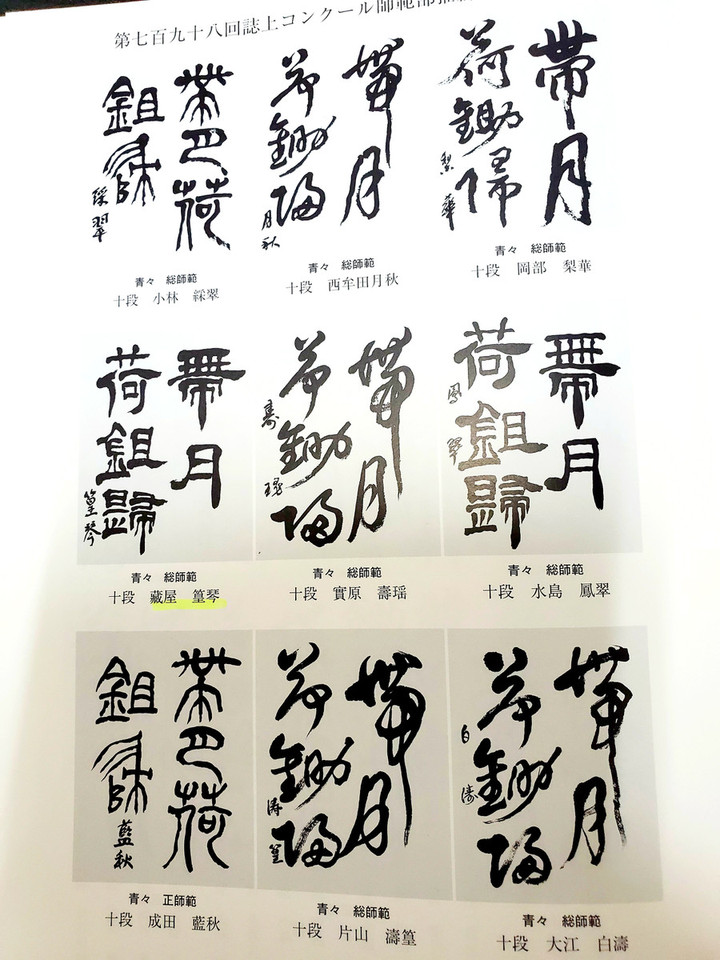 第七百九十八回誌上コンクール師範部
帶月
荷鋤歸
梨華
青々 総師範
十段 岡部 梨華
帶月
荷鋤歸
月秋
青々 総師範
十段 西牟田月秋
帶月荷
鉏歸
綵翠
青々 総師範
十段 小林 綵翠
帶月
荷鉏歸
鳳翠
青々 総師範
十段 水島 鳳翠
帶月
荷鋤歸
壽瑶
青々 総師範
十段 實原 壽瑶
帶月
荷鉏歸
篁琴
青々 総師範
十段 藏屋 篁琴
帶月
荷鋤歸
白濤
青々 総師範
十段 大江 白濤
帶月
荷鋤歸
濤篁
青々 総師範
十段 片山 濤篁
帶月荷
鉏歸
藍秋
青々 正師範
十段 成田 藍秋